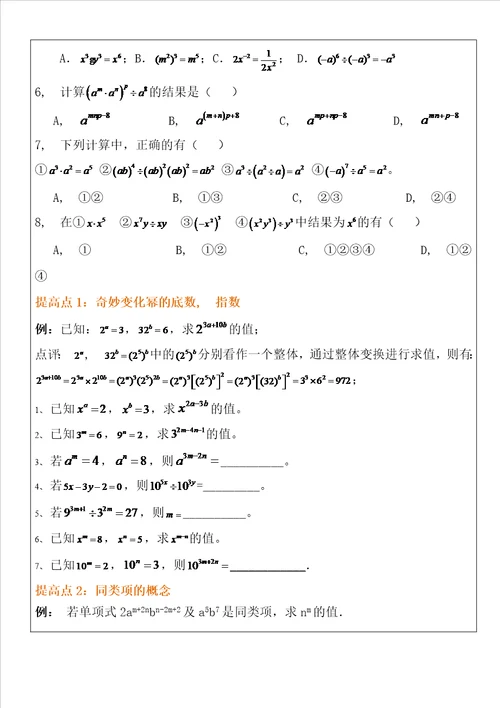 A. x³gy³ = x⁶; B. (m²)³ = m⁵; C. 2x⁻² = 1/2x²; D. (-a)⁶÷(-a)³ = -a³
6, 计算(aᵐ·aⁿ)ᵖ÷a⁸的结果是( )
A, a^{mnp-8} B, a^{(m+n)p+8} C, a^{mp+np-8} D, a^{mn+p-8}
7, 下列计算中,正确的有( )
①a³·a²=a⁵ ②(ab)⁴÷(ab)²(ab)²=ab² ③a³÷(a²÷a)=a² ④(-a)⁷÷a⁵=a²。
A, ①② B, ①③ C, ②③ D, ②④
8, 在①x·x⁵ ②x⁷y÷xy ③(-x²)³ ④(x²y³)÷y³中结果为x⁶的有( )
A, ① B, ①② C, ①②③④ D, ①②
④
提高点1:奇妙变化幂的底数, 指数
例:已知:2ᵃ=3,32ᵇ=6,求2^{3a+10b}的值;
点评:2ᵃ, 32ᵇ=(2⁵)ᵇ中的(2⁵)ᵇ分别看作一个整体,通过整体变换进行求值,则有:
2^{3a+10b}=2^{3a}×2^{10b}=(2ᵃ)³(2⁵)^{2b}=(2ᵃ)³[(2⁵)ᵇ]²=(2ᵃ)³[(32)ᵇ]²=3³×6²=972;
1、已知xᵃ=2,xᵇ=3,求x^{2a-3b}的值。
2、已知3ᵐ=6,9ⁿ=2,求3^{2m-4n-1}的值。
3、若aᵐ=4,aⁿ=8,则a^{3m-2n}=__________。
4、若5x-3y-2=0,则10^{5x}÷10^{3y}=_________。
5、若9^{3m+1}÷3^{2m}=27,则m=__________。
6、已知xᵐ=8,xⁿ=5,求x^{m-n}的值。
7、已知10ᵐ=2,10ⁿ=3,则10^{3m+2n}=____________.
提高点2:同类项的概念
例: 若单项式2a^{m+2n}b^{n-2m+2}及a⁵b⁷是同类项,求nᵐ的值.